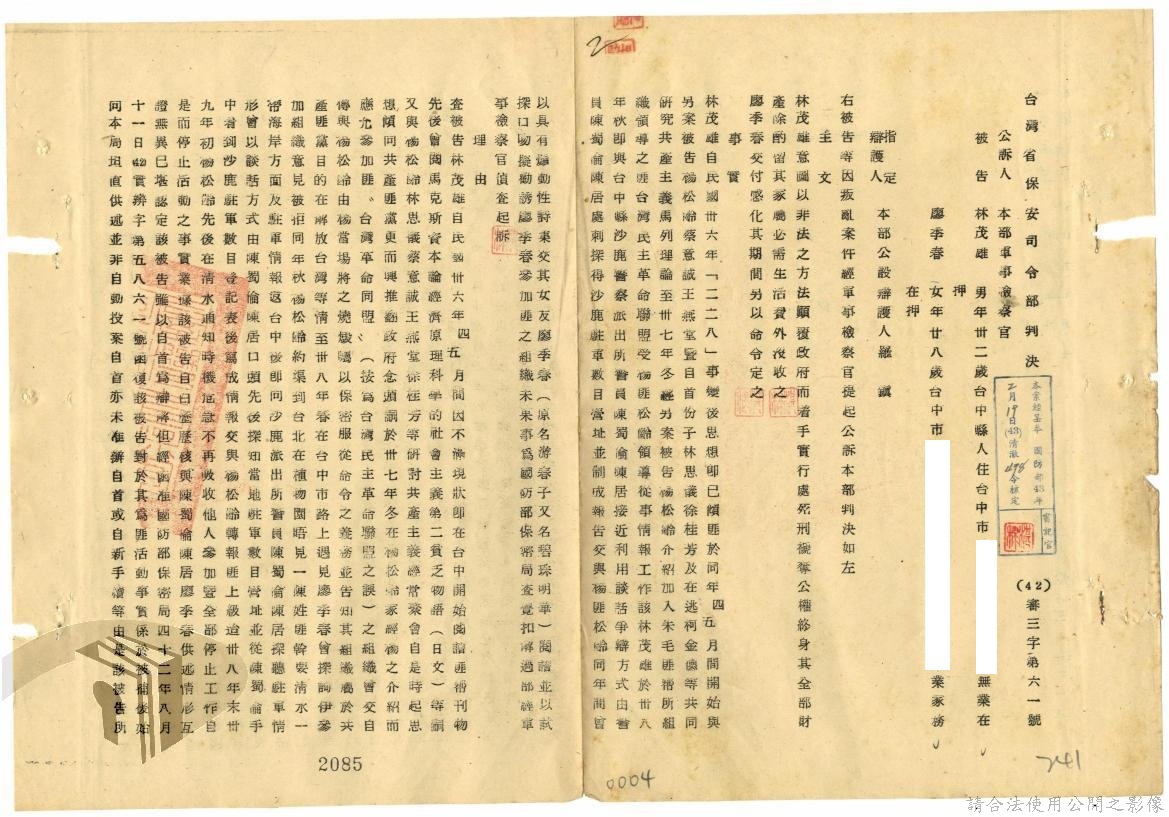 台灣省保安司令部判決
(42)審三字第六一號
本案經呈奉 國防部43年
2月19日(43)清澈
498令核定
書記官
公訴人 本部軍事檢察官
被告 林茂雄 男年卅二歲台中縣人住台中市 無業在
押
廖季春 女年廿八歲台中市 業家務
在押
指定
辯護人 本部公設辯護人羅
右被告等因叛亂案件經軍事檢察官提起公訴本部判決如左
主文
林茂雄意圖以非法之方法顛覆政府而着手實行處死刑褫奪公權終身其全部財
產除酌留其家屬必需生活費外沒收之
廖季春交付感化其期間另以命令定之
事實
林茂雄自民國卅六年「二二八」事變後思想即已傾匪於同年四五月間開始與
另案被告楊松齡蔡意誠王燕堂暨自首份子林思義徐桂芳及在逃柯金德等共同
研究共產主義馬列理論至卅七年冬經另案被告楊松齡介紹加入朱毛匪幫所組
織領導之匪台灣民主革命聯盟受楊匪松齡領導從事情報工作該林茂雄於卅八
年秋即與台中縣沙鹿警察派出所警員陳蜀倫陳居接近利用談話爭辯方式由警
員陳蜀倫陳居處刺探得沙鹿駐軍數目營址並制成報告交與楊匪松齡同年間曾
以具有煽動性詩集交其女友廖季春(原名游春子又名碧珠明華)閱讀並以試
探口吻擬勸誘廖季春參加匪之組織未果事為國防部保密局查覺扣解過部經軍
事檢察官偵查起訴
理由
查被告林茂雄自民國卅六年四五月間因不滿現狀即在台中開始閱讀匪幫刊物
先後曾閱馬克斯資本論經濟原理科學的社會主義第二貧乏物語(日文)等嗣
又與楊松齡林思義蔡意誠王燕堂徐桂芳等研討共產主義經常集會自是時起思
想傾向共產匪黨更而興推翻政府念頭嗣於卅七年冬在楊松齡家經楊之介紹而
應允參加匪“台灣革命同盟”(按為台灣民主革命聯盟之誤)之組織曾交自
傳與楊松齡由楊當場將之燒燬囑以保密服從命令之義務並告知其組織屬於共
產匪黨目的在解放台灣等情至卅八年春在台中市路上遇見廖季春曾探詢伊參
加組織意見被拒同年秋楊松齡約渠到台北在植物園晤見一陳姓匪幹要清水一
帶海岸方面及駐軍情報返台中後即向沙鹿派出所警員陳蜀倫陳居探聽駐軍情
形曾以談話方式由陳蜀倫陳居口頭先後探知當地駐軍數目營址並從陳蜀倫手
中看到沙鹿駐軍數目登記表後寫成情報交與楊松齡轉報匪上級迨卅八年末卅
九年初楊松齡先後在清水通知時機危急不再吸收他人參加暨全部停止工作自
是而停止活動之事實業據該被告自白歷歷核與陳蜀倫陳居廖季春供述情形互
證無異已堪認定該被告雖以自首為辯解但經函准國防部保密局四十二年八月
十一日(42)實辨字第五八六一號函復該被告對於其為匪活動事實係於被捕後始
向本局坦直供述並非自動投案自首亦未准辦自首或自新手續等由是該被告所
2085
0004
241
請合法使用公開之影像